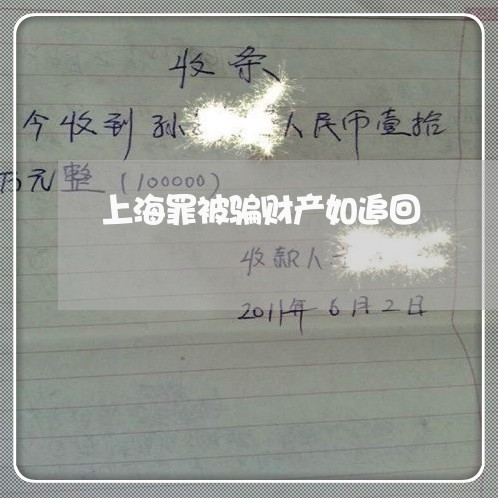 收条
今收到孙 人民币壹拾
万元整(100000)
上海罪被骗财产如追回
收款人
2011年6月2日